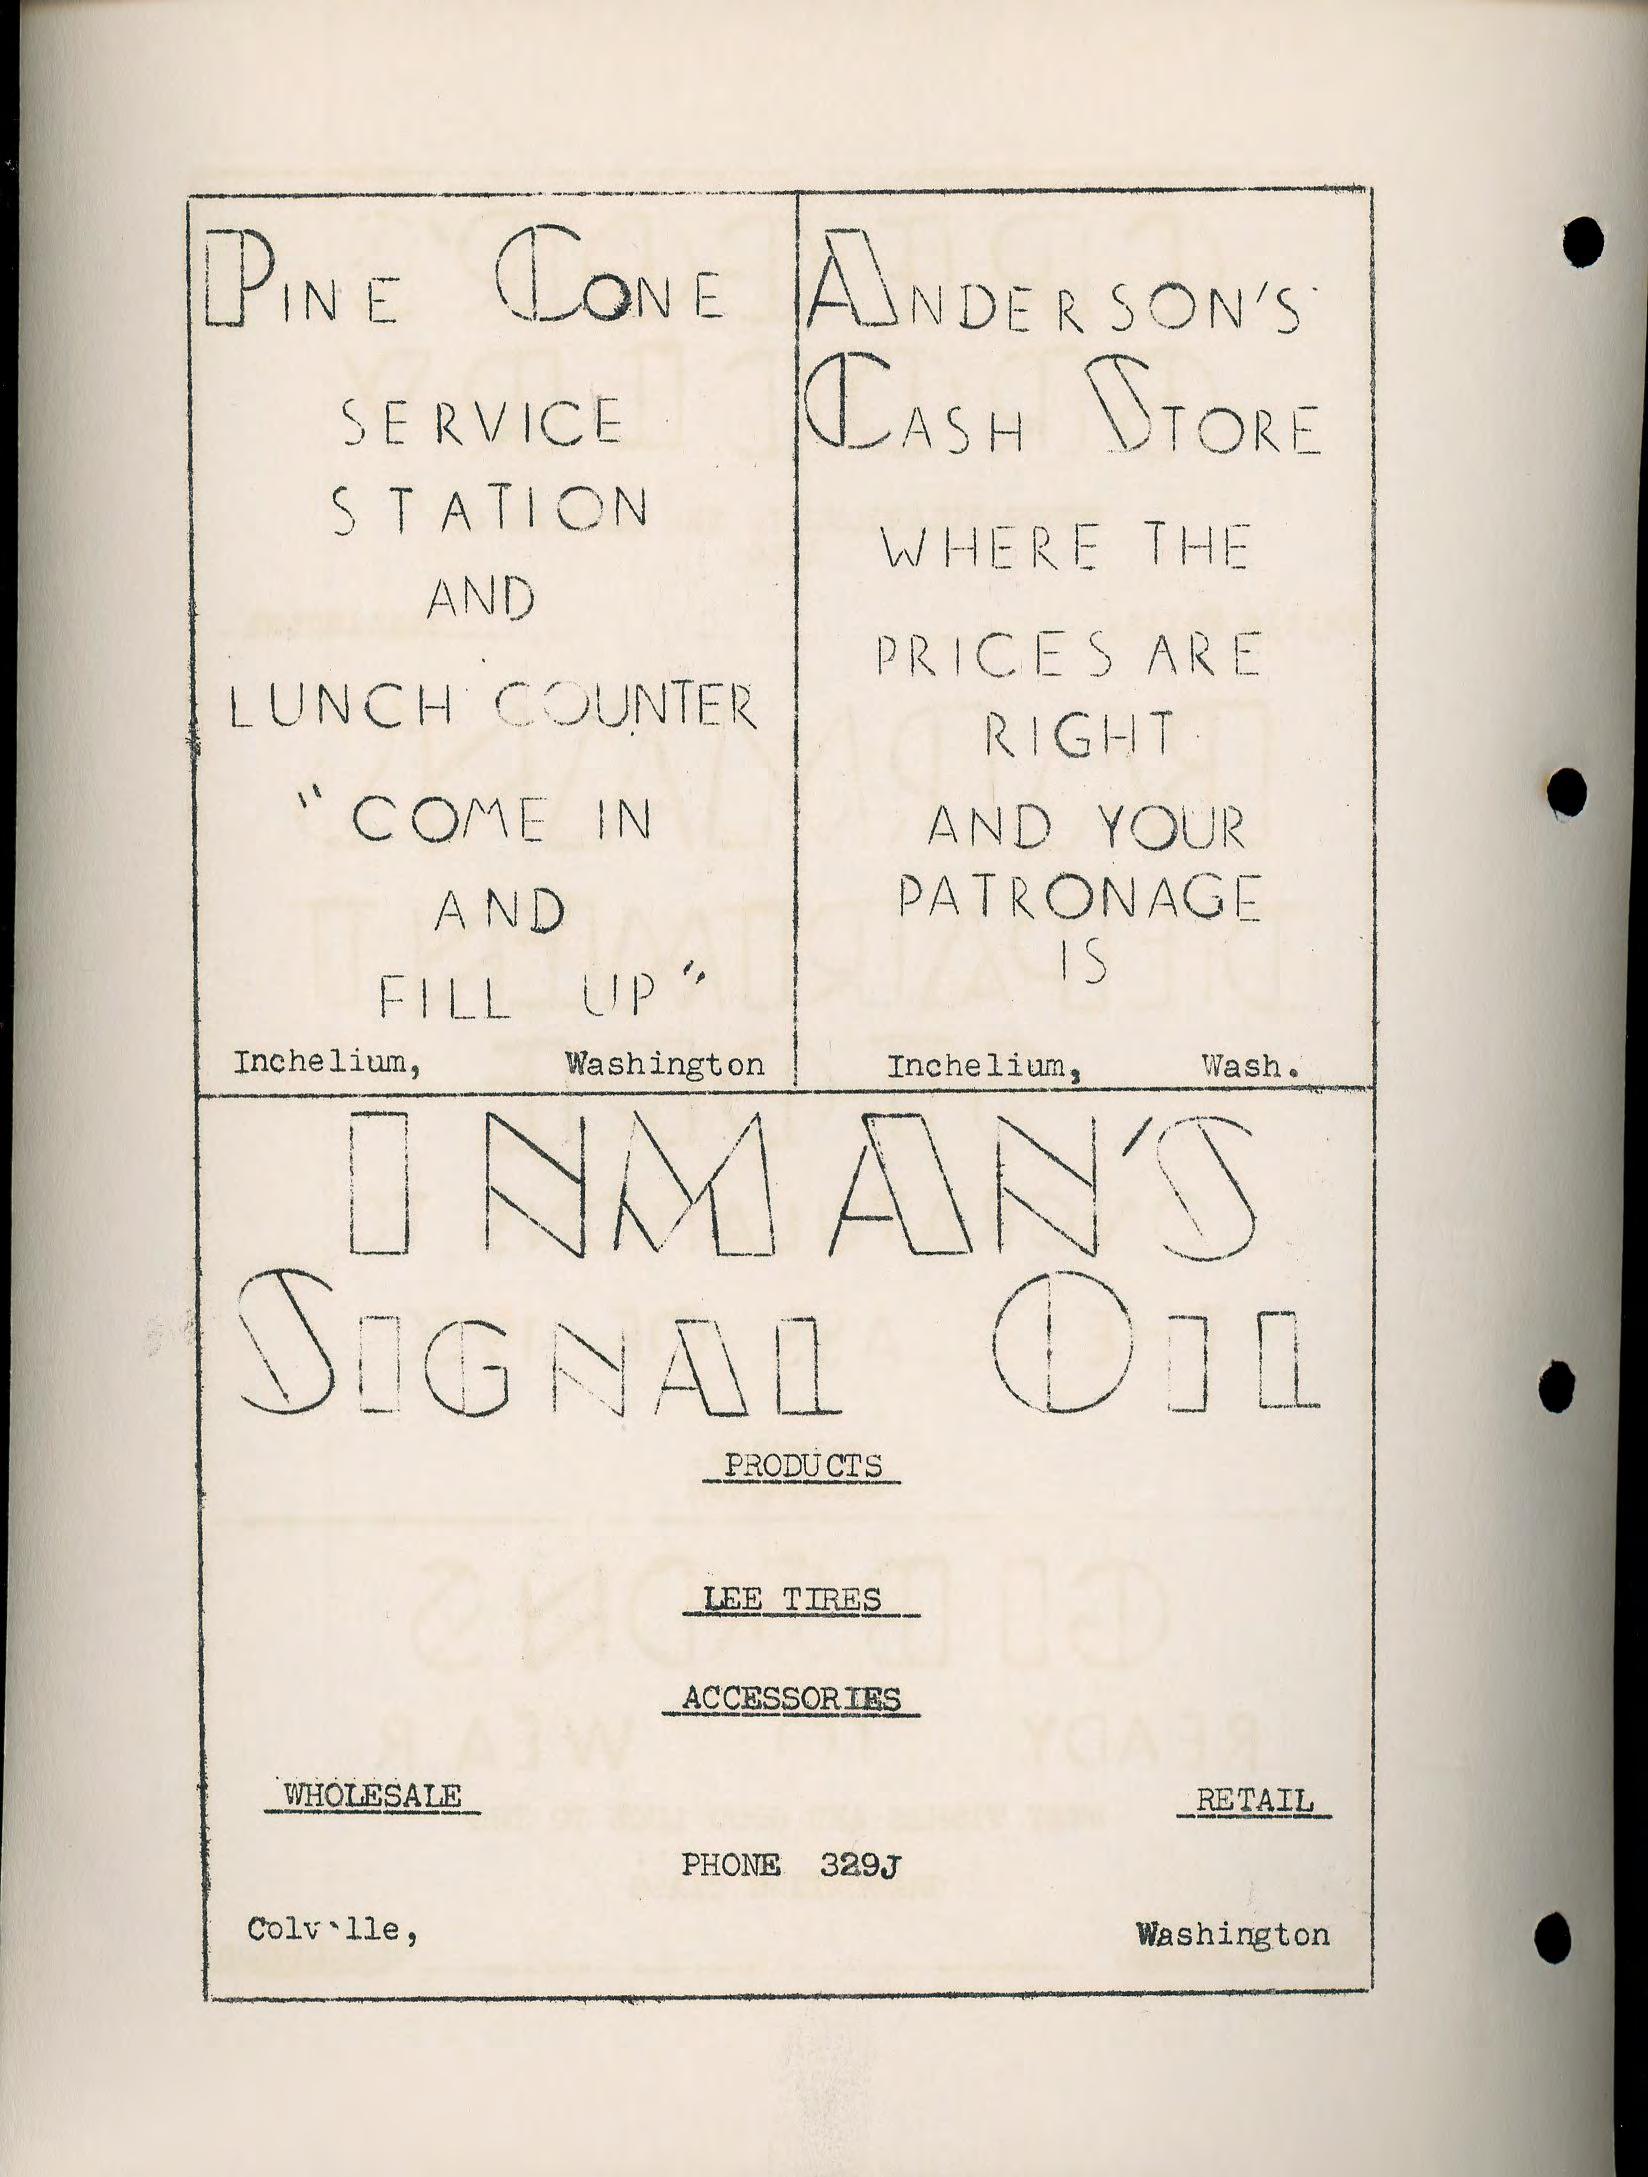 PINE CONE
SERVICE
STATION
AND
LUNCH COUNTER
"COME IN
AND
FILL UP"
Inchelium, Washington
ANDERSON'S
CASH STORE
WHERE THE
PRICES ARE
RIGHT
AND YOUR
PATRONAGE
IS
Inchelium, Wash.
INMAN'S
SIGNAL OIL
PRODUCTS
LEE TIRES
ACCESSORIES
WHOLESALE RETAIL
PHONE 329J
Colv lle, Washington